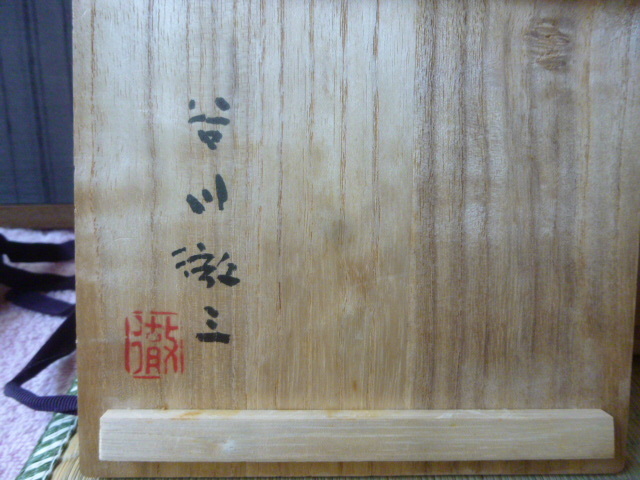 谷川徹三
徹